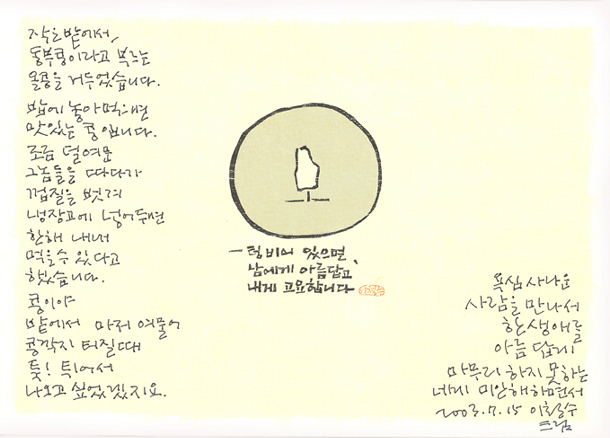 작은 밭에서,
동부콩이라고 부르는
올콩을 거두었습니다.
밥에 놓아 먹으면
맛있는 콩입니다.
조금 덜 여문
그놈들을 따다가
껍질을 벗겨
냉장고에 넣어두면
한해 내내
먹을 수 있다고
했습니다.
콩이야
밭에서 마저 여물어
콩깍지 터질 때
툭! 튀어서
나오고 싶었겠지요.
— 텅 비어 있으면,
남에게 아름답고,
내게 고요합니다
욕심 사나운
사람을 만나서
한 생애를
아름답게
마무리하지 못하는
네게 미안해하면서
2003.7.15 이철수
드림